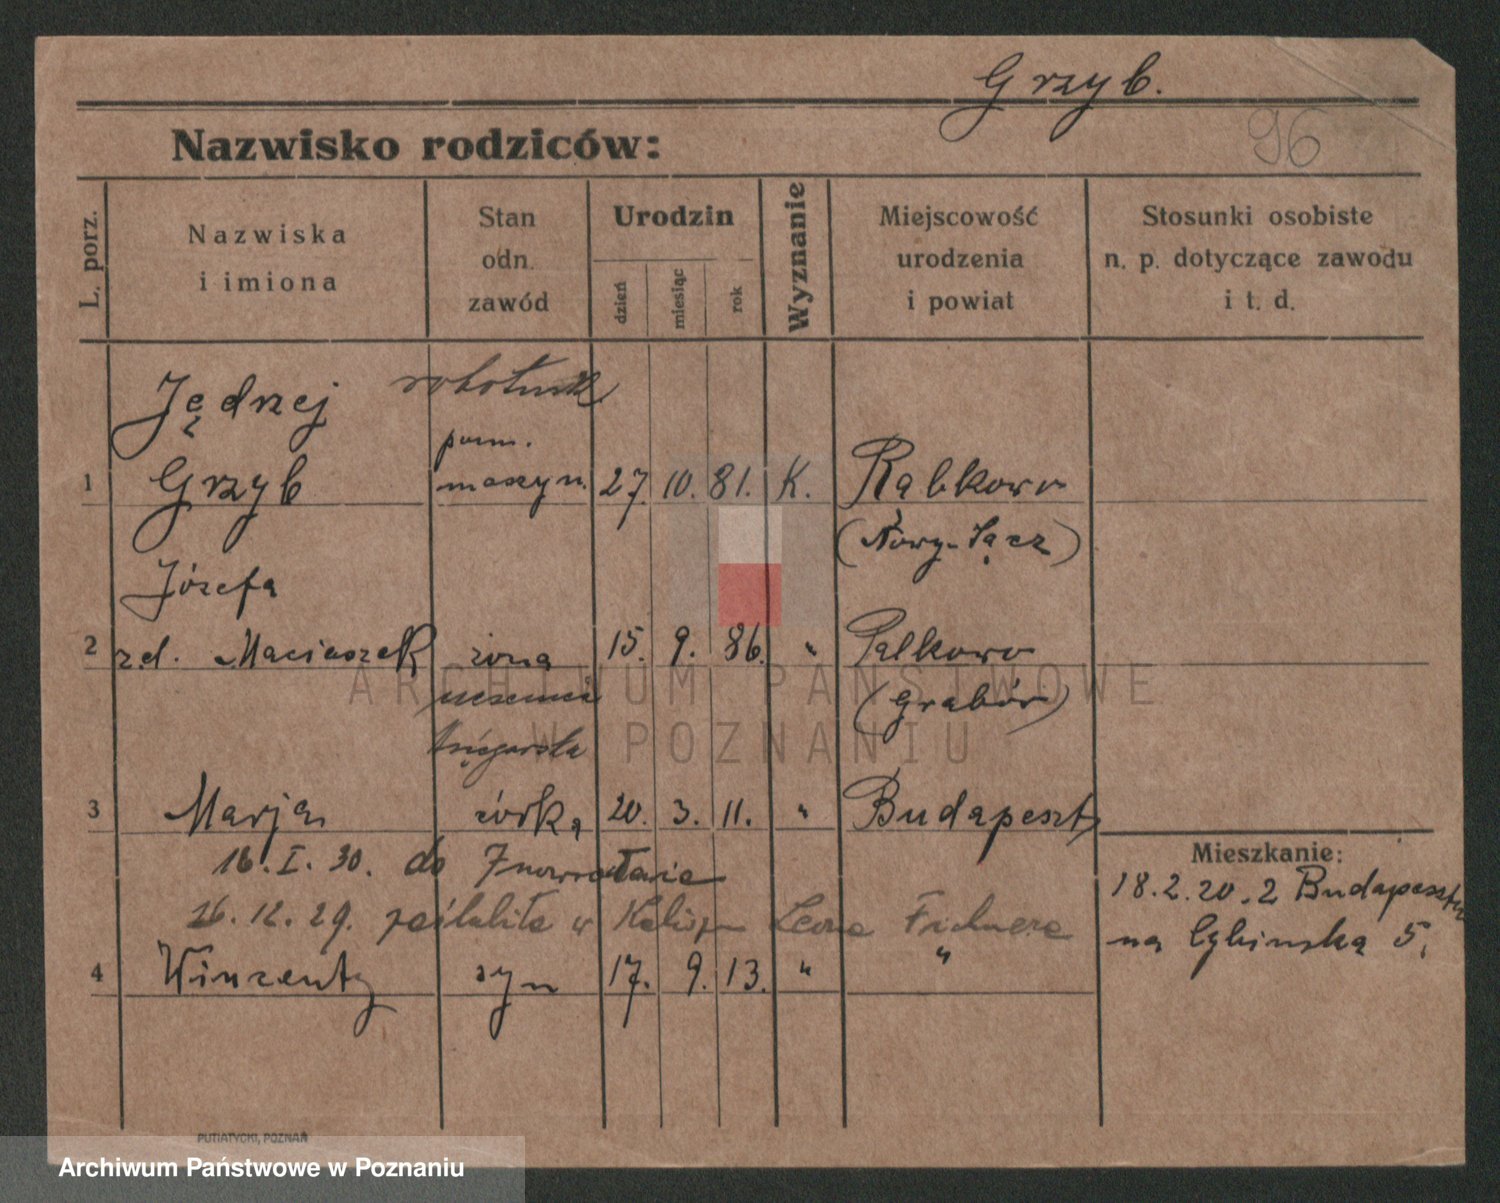 Grzyb.
96
Nazwisko rodziców:
L. porz.
Nazwiska
i imiona
Stan
odn.
zawód
Urodzin
dzień
miesiąc
rok
Wyznanie
Miejscowość
urodzenia
i powiat
Stosunki osobiste
n. p. dotyczące zawodu
i t. d.
Jędrzej robotnik
pom.
1 Grzyb maszyn. 27. 10. 81. K. Rąbkowa
(Nowy-Sącz)
Józefa
2 zd. Maciaszek żona 15. 9. 86. " Palkowo
(Grabów)
uczennica
księgarska
3 Marja córka 20. 3. 11. " Budapeszt
16. I. 30. do Inowrocławia
16. 12. 29. zaślubiła w Leona
4 Wincenty syn 17. 9. 13. " "
Mieszkanie:
18.2.20. z Budapesztu
na Cybinską 5.
ARCHIWUM PAŃSTWOWE
W POZNANIU
PUTIATYCKI, POZNAŃ
Archiwum Państwowe w Poznaniu